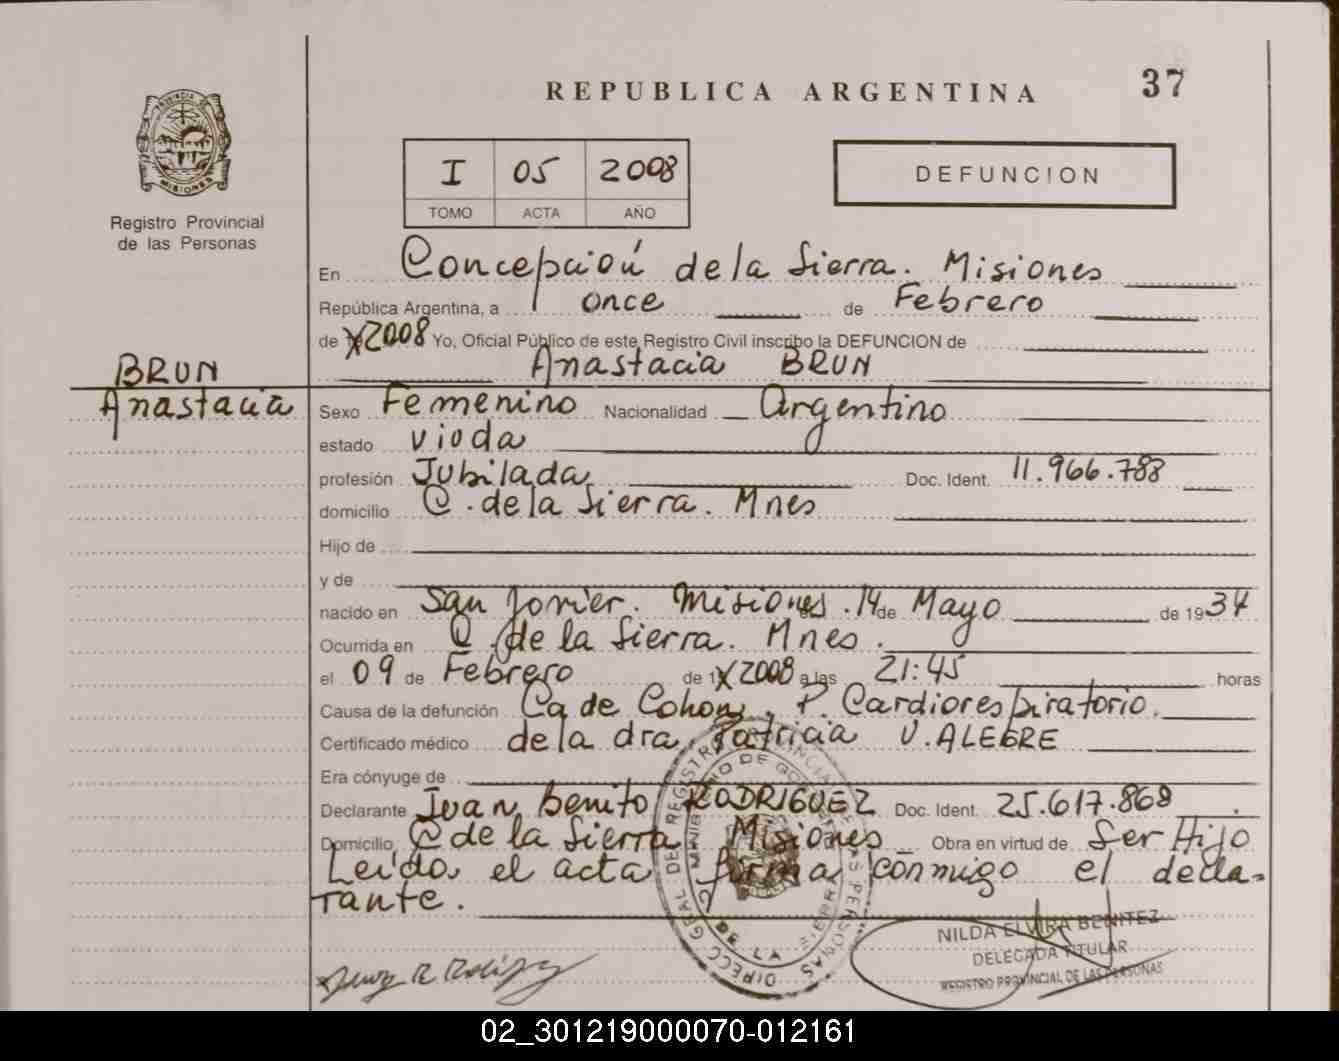 37
REPUBLICA ARGENTINA
PROVINCIA DE MISIONES
I 05 2008
TOMO ACTA AÑO
DEFUNCION
Registro Provincial
de las Personas
En Concepción de la Sierra. Misiones
República Argentina, a once de Febrero
de 2008 Yo, Oficial Público de este Registro Civil inscribo la DEFUNCION de
Anastacia BRUN
BRUN
Anastacia
Sexo Femenino Nacionalidad Argentino
estado viuda
profesión Jubilada Doc. Ident. 11.966.788
domicilio C. de la Sierra. Mnes
Hijo de
y de
nacido en San Javier. Misiones. 14 de Mayo de 1934
Ocurrida en C. de la Sierra. Mnes.
el 09 de Febrero de 2008 a las 21:45 horas
Causa de la defunción Ca de P. Cardiorespiratorio.
Certificado médico de la dra. Patricia V. ALEGRE
Era cónyuge de
Declarante Juan Benito RODRIGUEZ Doc. Ident. 25.617.868
Domicilio C de la Sierra Misiones Obra en virtud de Ser Hijo
Leido el acta firma conmigo el decla-
rante.
NILDA ELVIRA BENITEZ
DELEGADA TITULAR
REGISTRO PROVINCIAL DE LAS PERSONAS
02_301219000070-012161